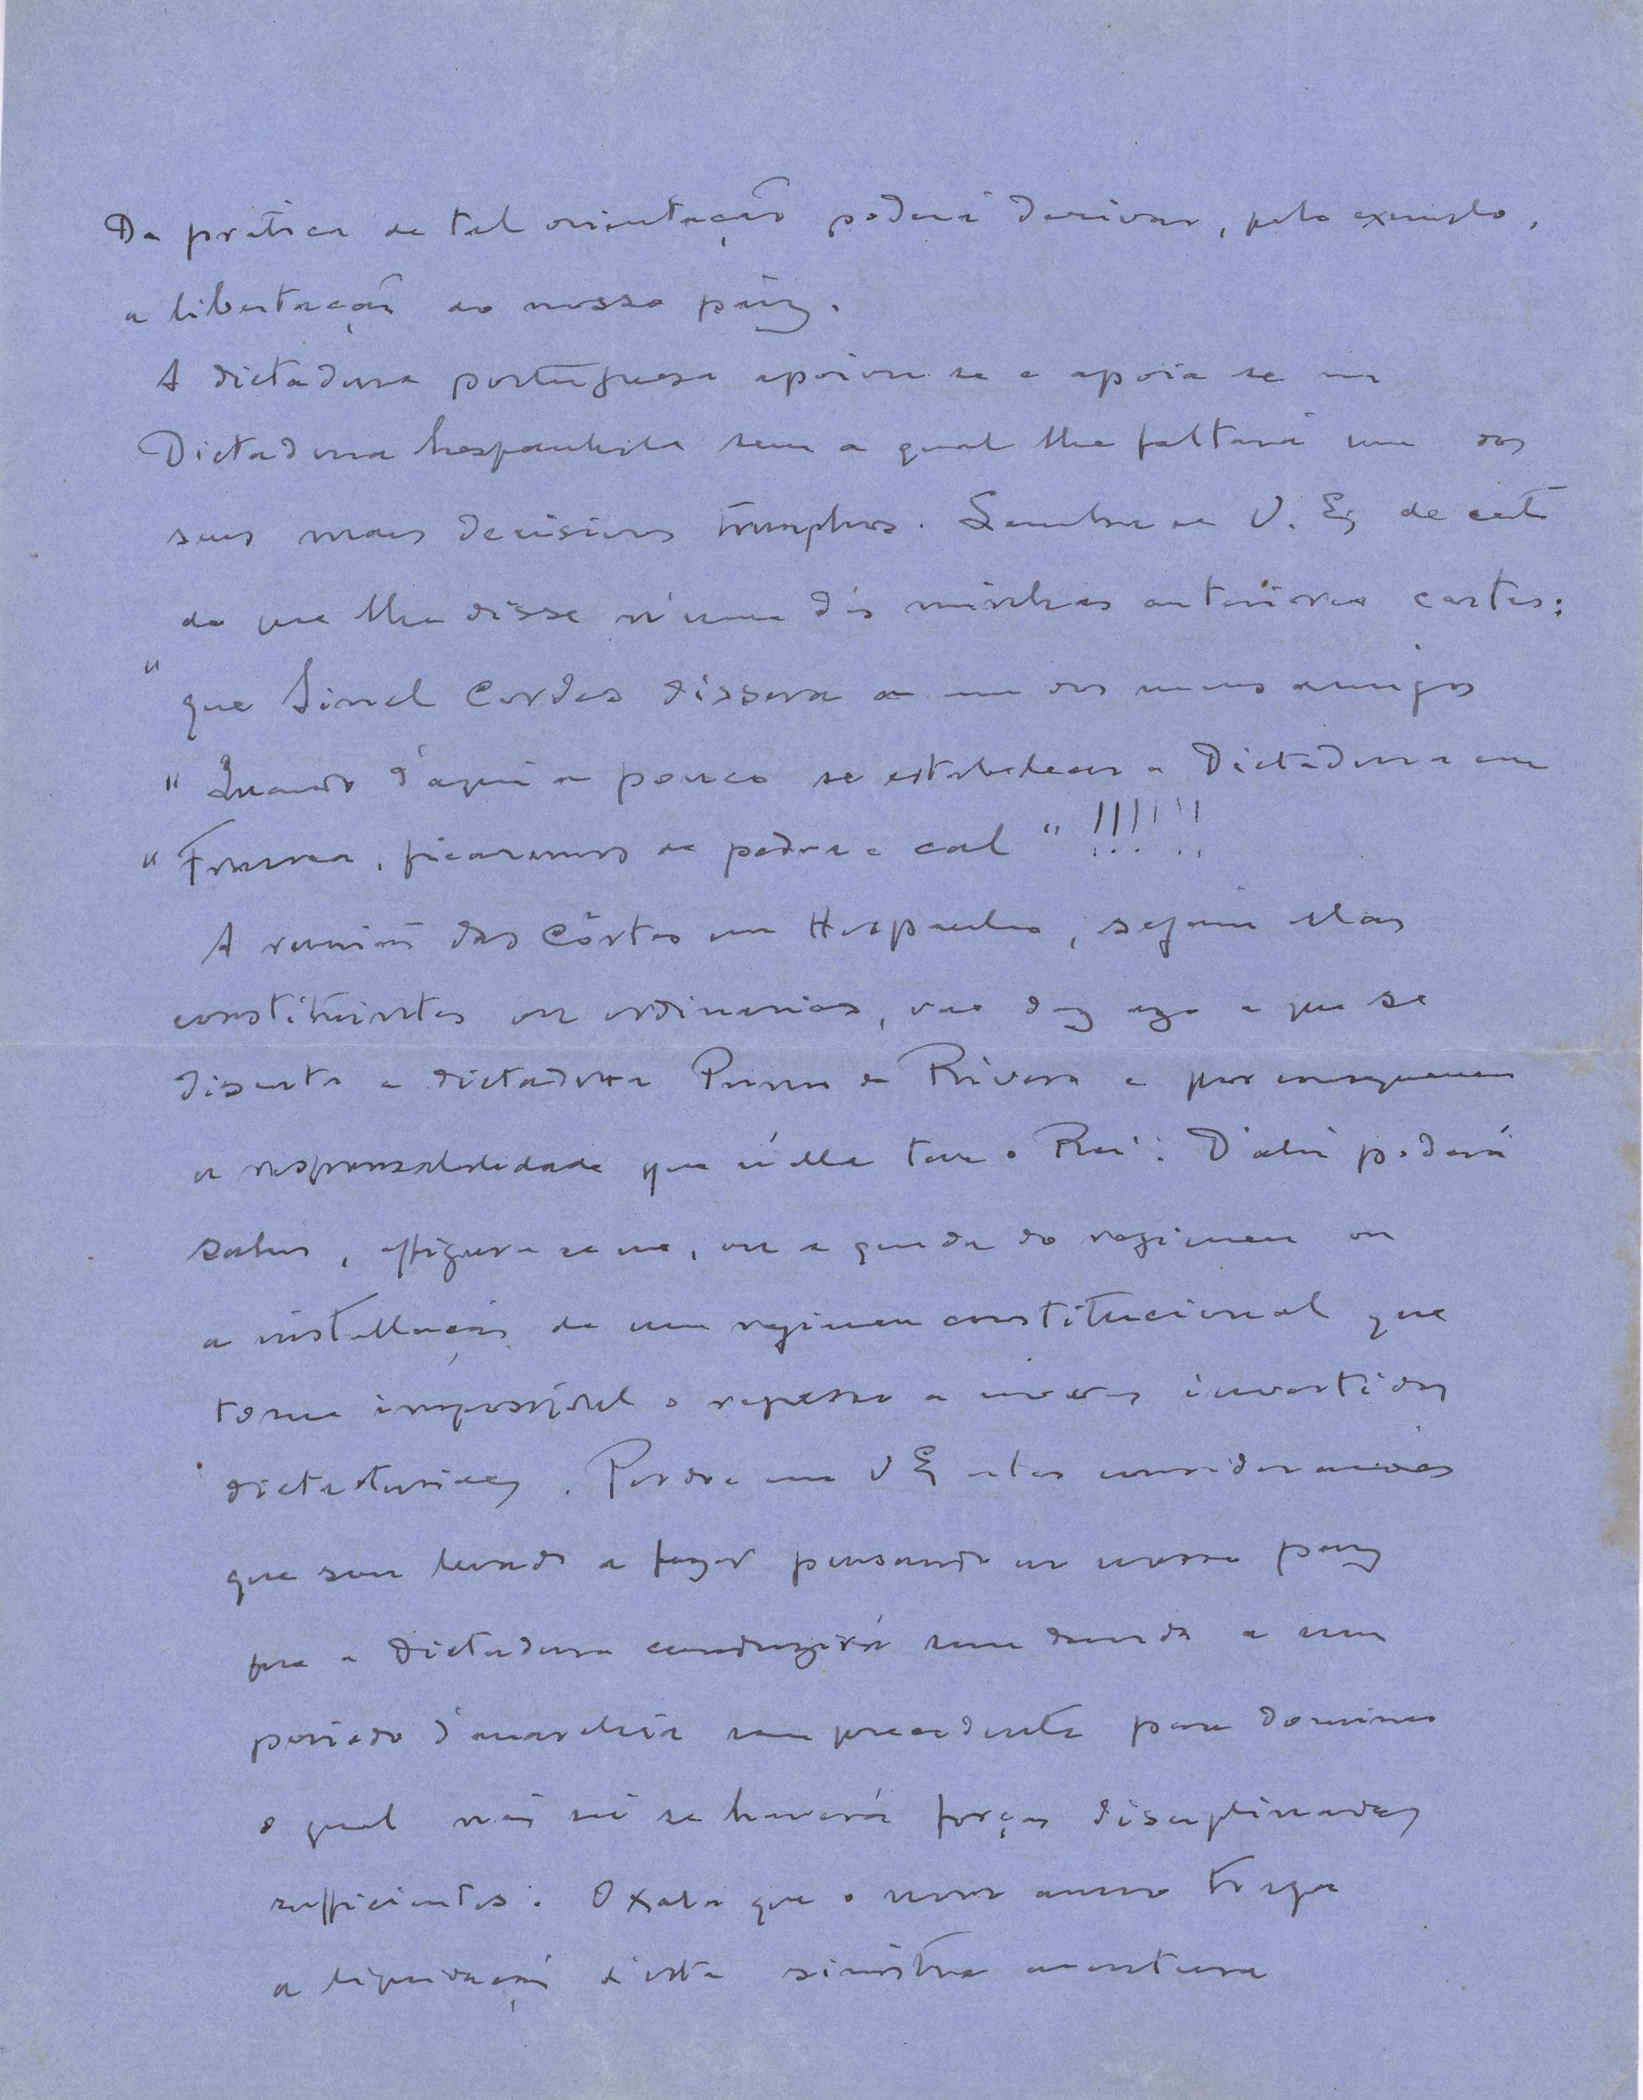 Da pratica de tal orientação poderá derivar, pelo exemplo,
a libertação do nosso páiz.
A dictadura portuguesa apoiou se e apoia se na
Dictadura hespanhola sem a qual lhe faltará um dos
seus mais decisivos trumphos. Lembra se V. Exª de certo
do que lhe disse n'uma das minhas anteriores cartas:
" que Sinel Cordes dissera a um dos meus amigos
" Quando d'aqui a pouco se estabelecer a Dictadura em
" França, ficaremos de pedra e cal " !!!!!!
A reunião das Côrtes em Hespanha, sejam ellas
constituintes ou ordinarias, vae dar azo a que se
discuta a dictadura Primo de Rivera e por consequencia
a responsabilidade que n'ella teve o Rei: D'ahi poderá
sahir, affigura se me, ou a queda do regimen ou
a installação de um regimen constitucional que
torne impossivel o regresso a novas investidas
dictatoriaes. Perdoe me V Exª estas considerações
que sou levado a fazer pensando no nosso paiz
que a Dictadura conduzirá sem duvida a um
periodo d'anarchia sem precedente para dominar
o qual não sei se haverá forças disciplinadas
sufficientes. Oxalá que o novo anno traga
a liquidação d'esta sinistra aventura